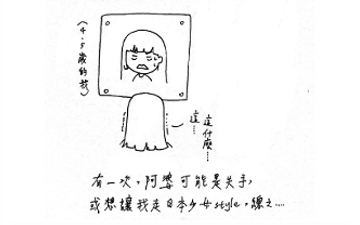 (4.5歲的我)
這什麼...
這...
有一次，阿婆可能是失手，
或想讓我走日本少女style，總之....